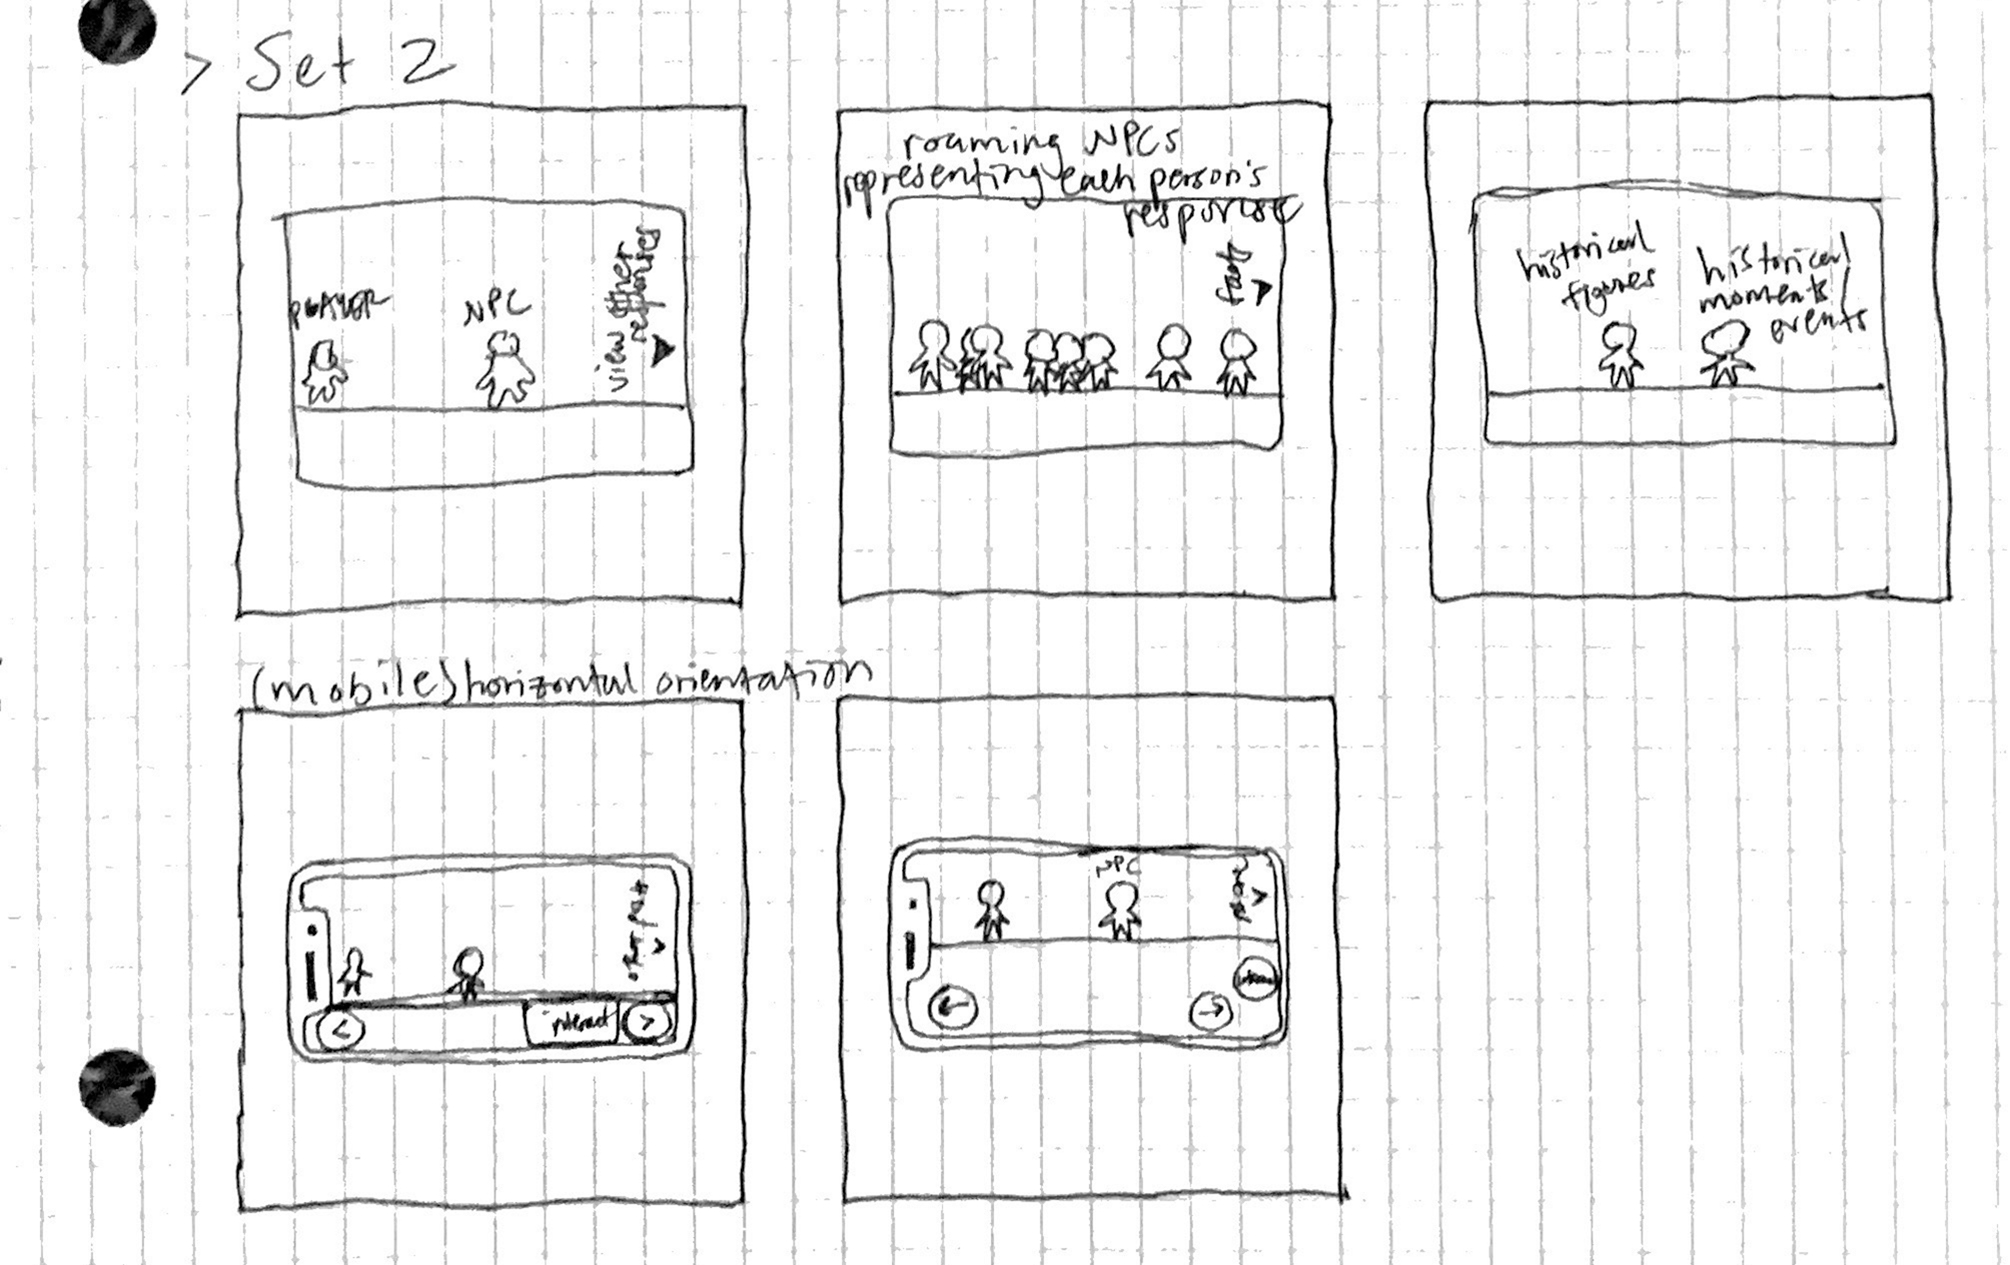 > Set 2
PLAYER
NPC
view other
responses
roaming NPCs
representing each person's
response
historical
figures
historical
moments/
events
(mobile) horizontal orientation
<
interact
>
NPC
←
→